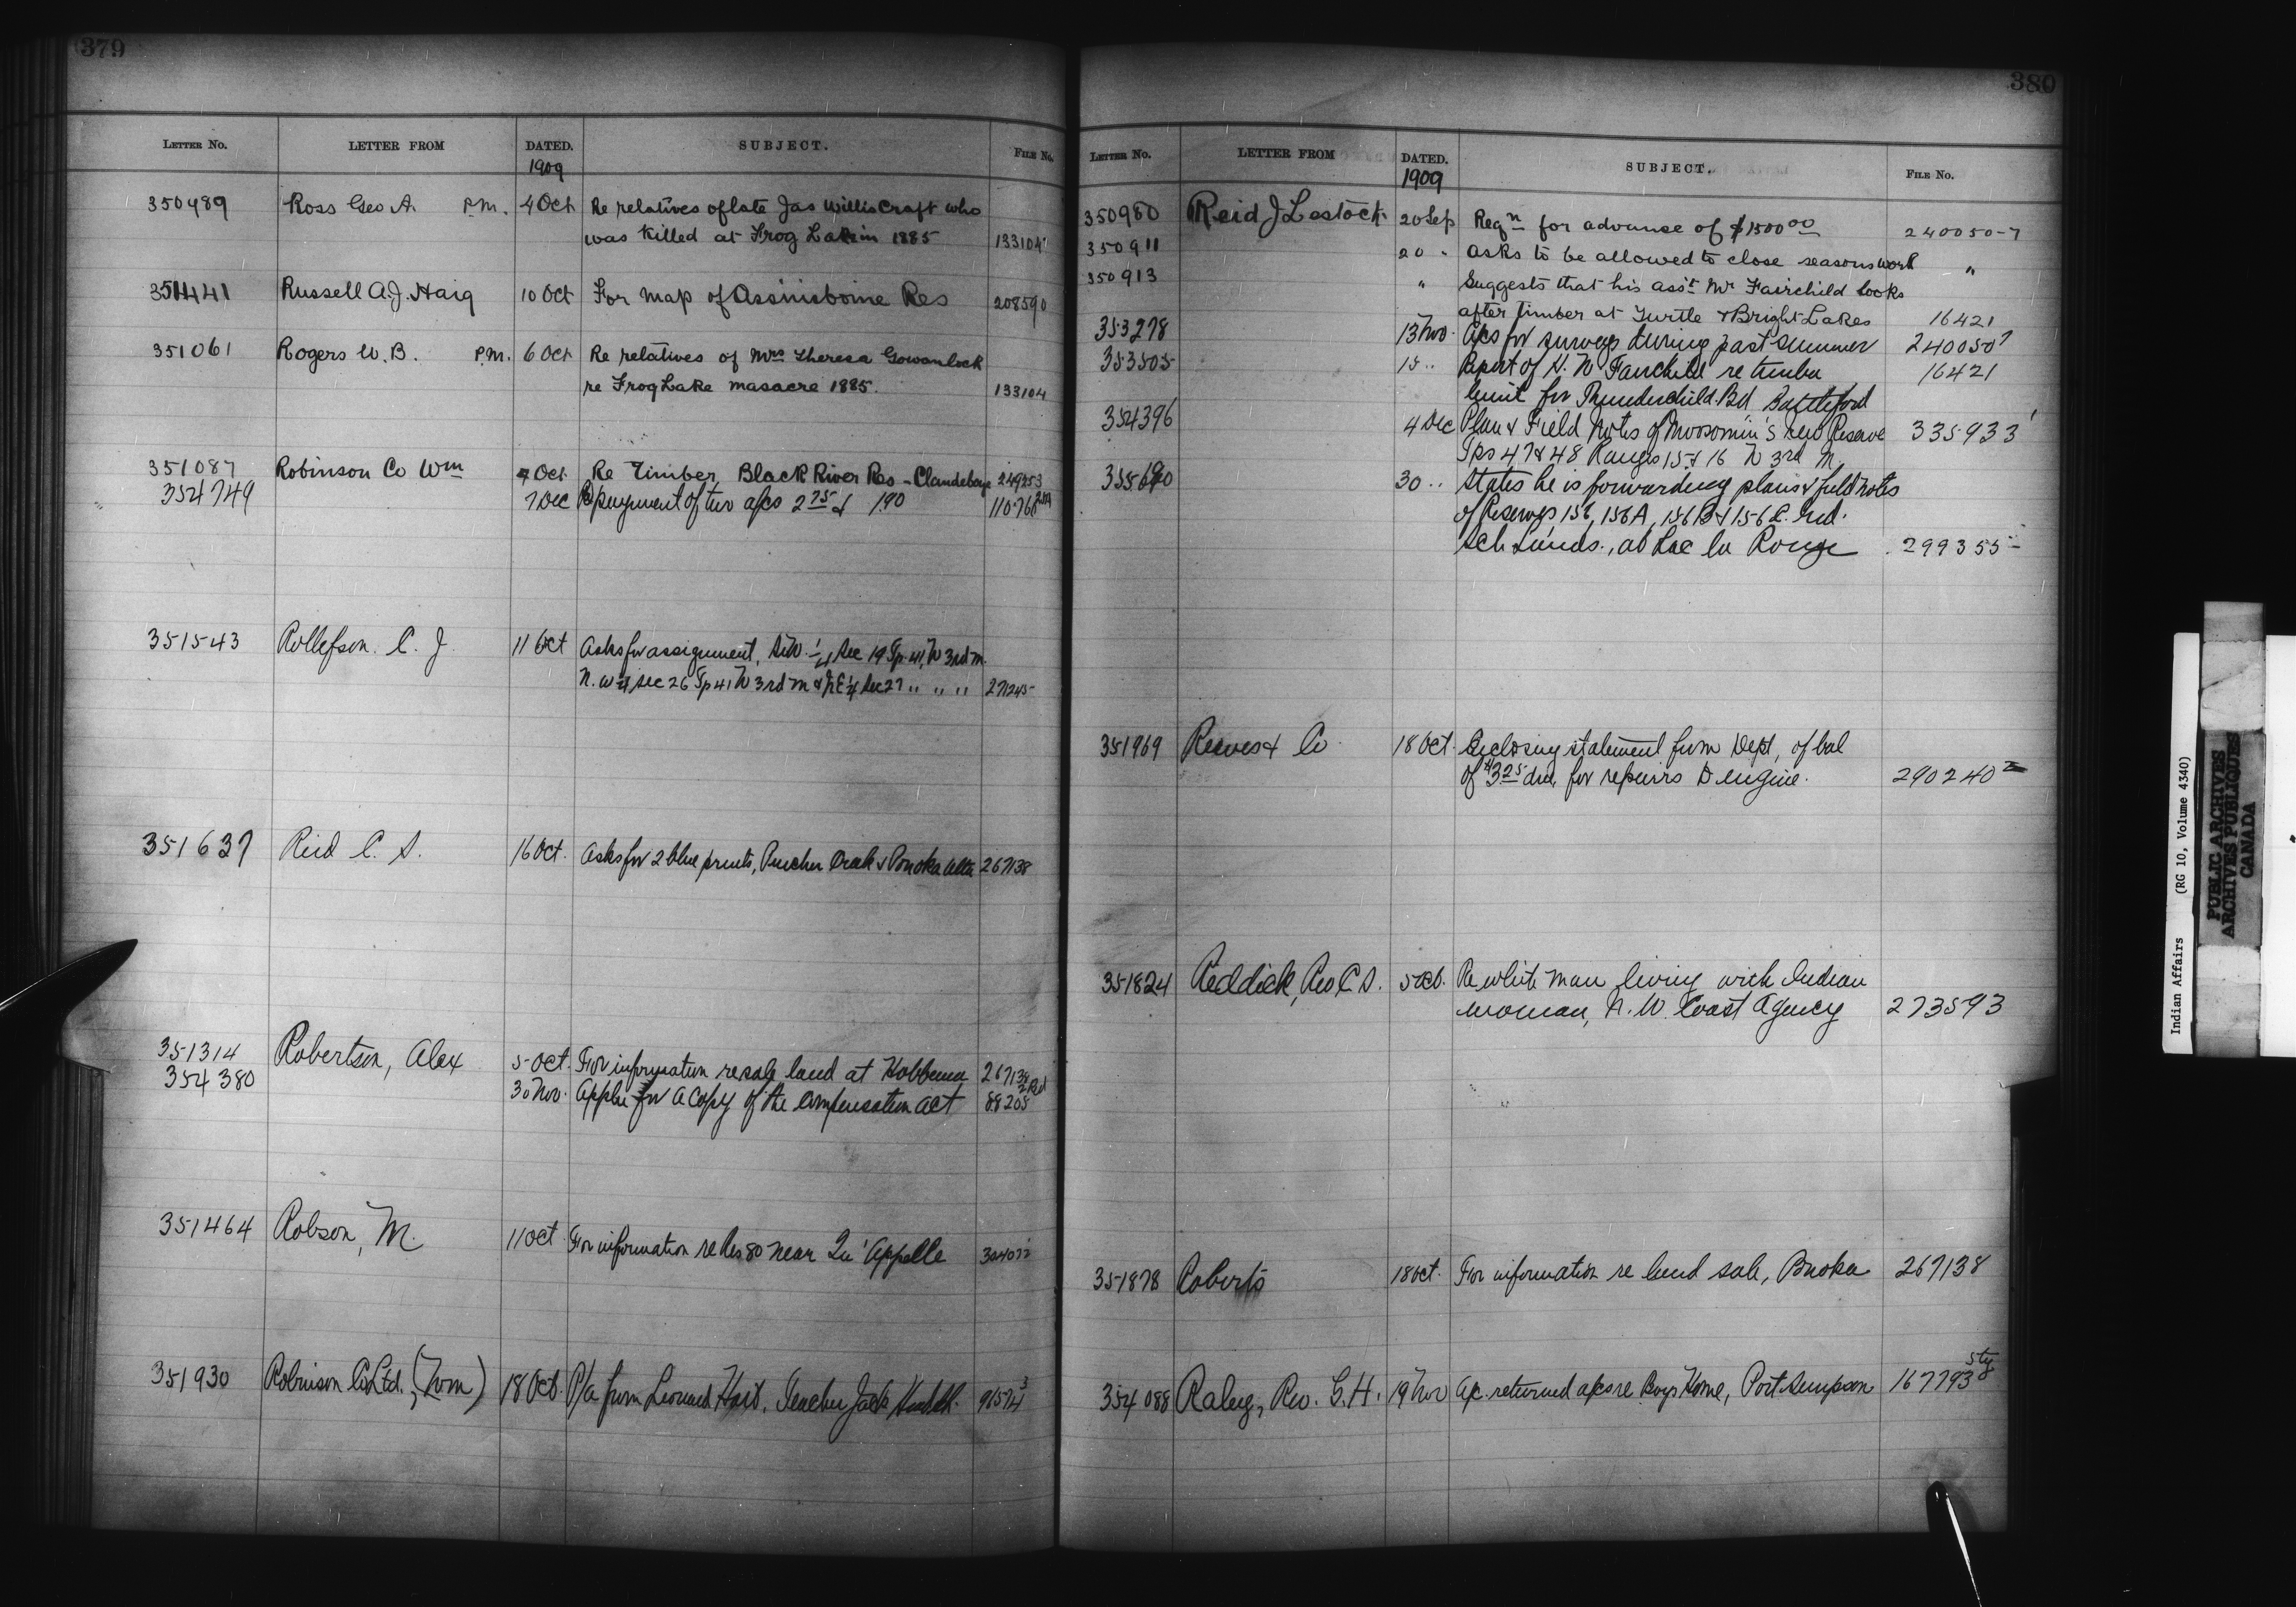 379
LETTER No. LETTER FROM DATED. SUBJECT. FILE No.
1909
350489 Ross Geo A. P.M. 4 Oct Re relatives of late Jas Willis Craft who
was killed at Frog Lake in 1885 133104
351441 Russell A.J. Haig 10 Oct For map of Assiniboine Res 208590
351061 Rogers W. B. P.M. 6 Oct Re relatives of Mrs Theresa Gowanlock
re Frog Lake masacre 1885. 133104
351087 Robinson Co Wm Oct Re Timber, Black River Res - Clandeboye 249253
354749 7 Dec Re payment of two a/cs 2 75 & 1.90
351543 Rollefson. C. J. 11 Oct Asks for assignment, 1/4 Sec 19 Tp. 41, W 3rd m.
N.W 1/4 sec 26 Tp 41 W 3rd m & N.E 1/4 Sec 27 " " " 271245
351637 Reid C. S. 16 Oct. Asks for 2 blue prints, Pincher Creek & Ponoka Alta 267138
351314 Robertson, Alex 5 Oct. For information re sale land at Hobbema 267138
354380 30 Nov. Applies for a copy of the compensation act 88205
351464 Robson, M. 11 Oct. For information re Res 80 near Qu'Appelle
351930 Robinson Co Ltd., (Wm) 18 Oct. P/a from Leonard Hart, Teacher Jack
380
LETTER No. LETTER FROM DATED. SUBJECT. FILE No.
1909
350980 Reid J Lestock 20 Sep Reqn for advance of $1500 00 240050-7
350911 20 " Asks to be allowed to close seasons work "
350913 " Suggests that his ass't Mr Fairchild looks
after timber at Turtle & Bright Lakes 16421
353278 13 Nov. A/cs for surveys during past summer 240050 7
353505 15 " Report of H. N Fairchild re timber 16421
limit for Thunderchild Bd, Battleford
354396 4 Dec Plan & Field Notes of Moosomin's new Reserve 335933
Tps 47 & 48 Ranges 15 & 16 W 3rd M.
30 " States he is forwarding plans & field notes
of Reserves 156, 156A, 156B & 156C. Ind.
Sch Lands., at Lac la Ronge 299355
351969 Reeves & Co 18 Oct. Enclosing statement from Dept, of bal
of $3.25 due, for repairs to engine. 290240
351824 Reddick, Rev C S. 5 Oct. Re white man living with Indian
woman, N. W. Coast Agency 273593
351878 Roberts 18 Oct. For information re land sale, Ponoka 267138
354088 Raley, Rev. G. H. 19 Nov a/c. returned a/cs re Boys Home, Port Simpson 167793
Indian Affairs (RG 10, Volume 4340)
PUBLIC ARCHIVES
ARCHIVES PUBLIQUES
CANADA